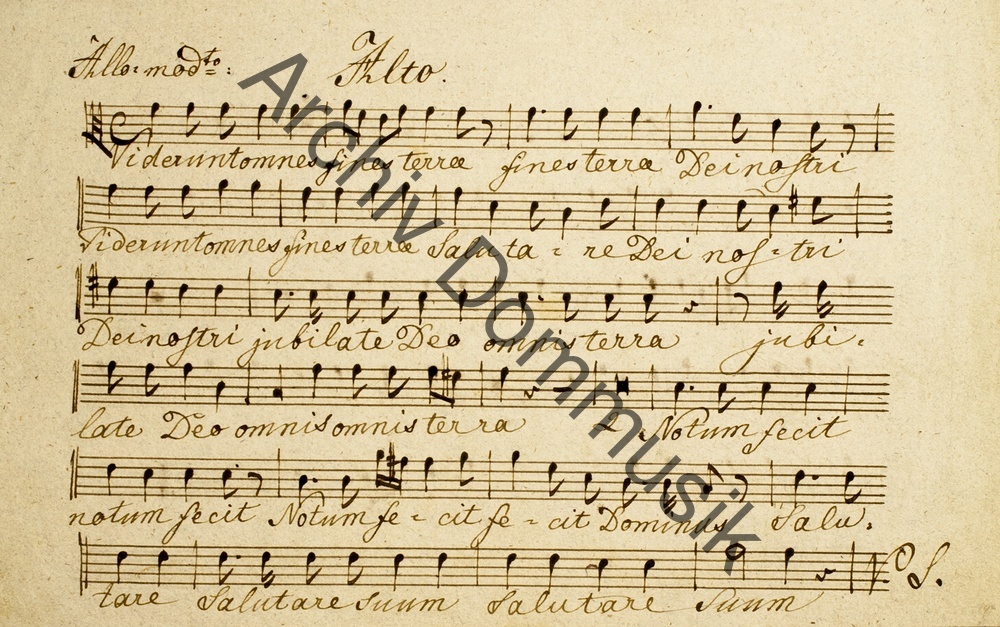 Allo: modto: Alto.
Viderunt omnes fines terræ fines terræ Dei nostri
Viderunt omnes fines terræ Saluta = re Dei nos = tri
Dei nostri jubilate Deo omnis terra jubi =
late Deo omnis omnis terra 2 Notum fecit
notum fecit Notum fe = cit fe = cit Dominus Salu =
tare Salutare suum Salutare Suum S.
Archiv Dommusik